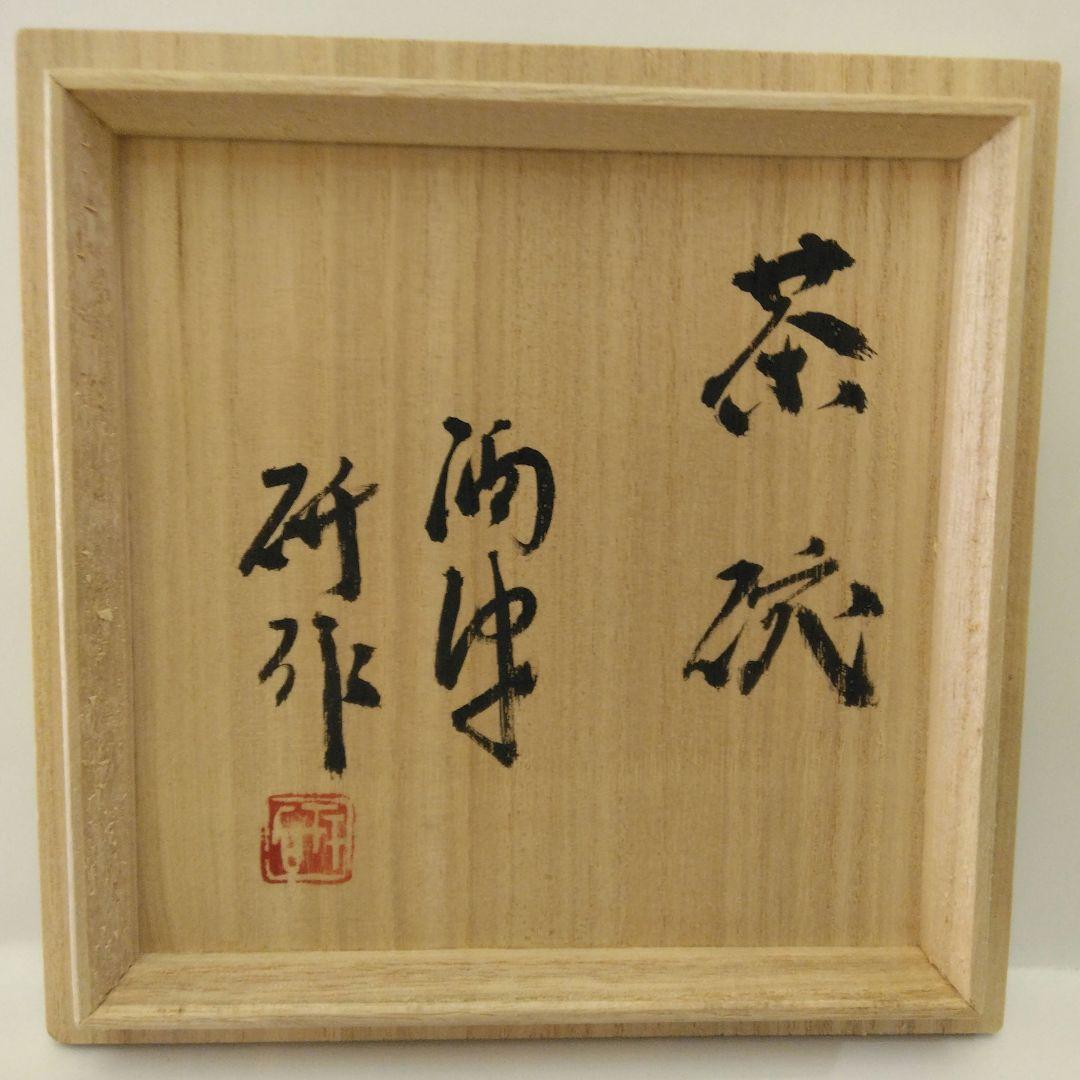 茶碗
酒津
研作